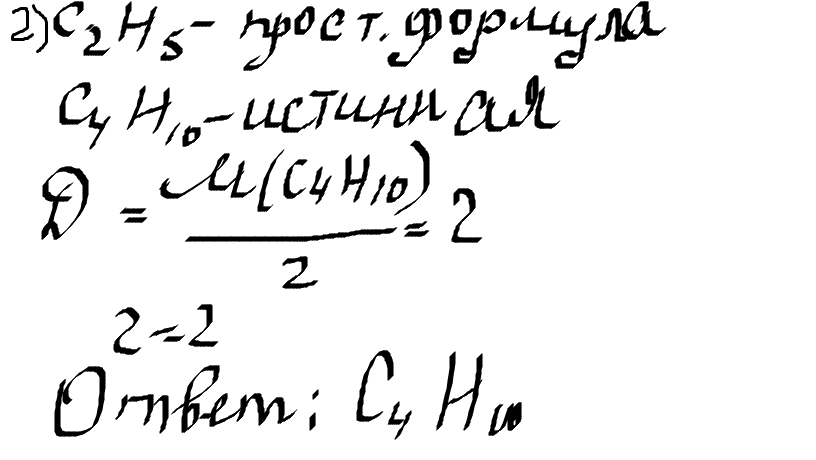 2) C₂H₅ - прост. формула
C₄H₁₀ - истинная
D = M(C₄H₁₀) / 2 = 2
2 = 2
Ответ: C₄H₁₀